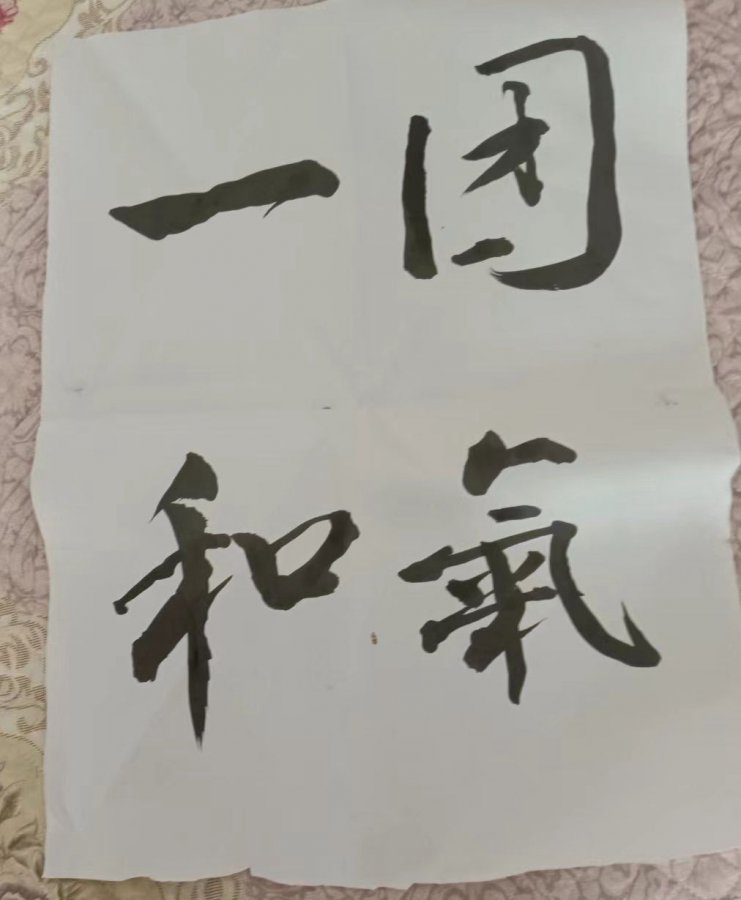 一团
和氣